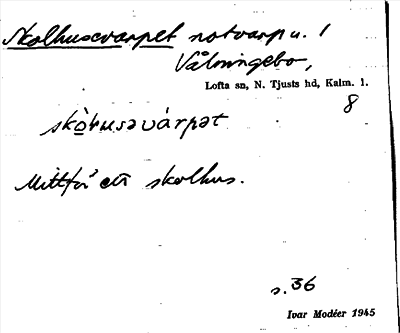 Skolhusevarpet notvarp u. 1
Vålmingebo,
Lofta sn, N. Tjusts hd, Kalm. l.
8
skòhusəvárpət
Mittför ett skolhus.
s. 36
Ivar Modéer 1945